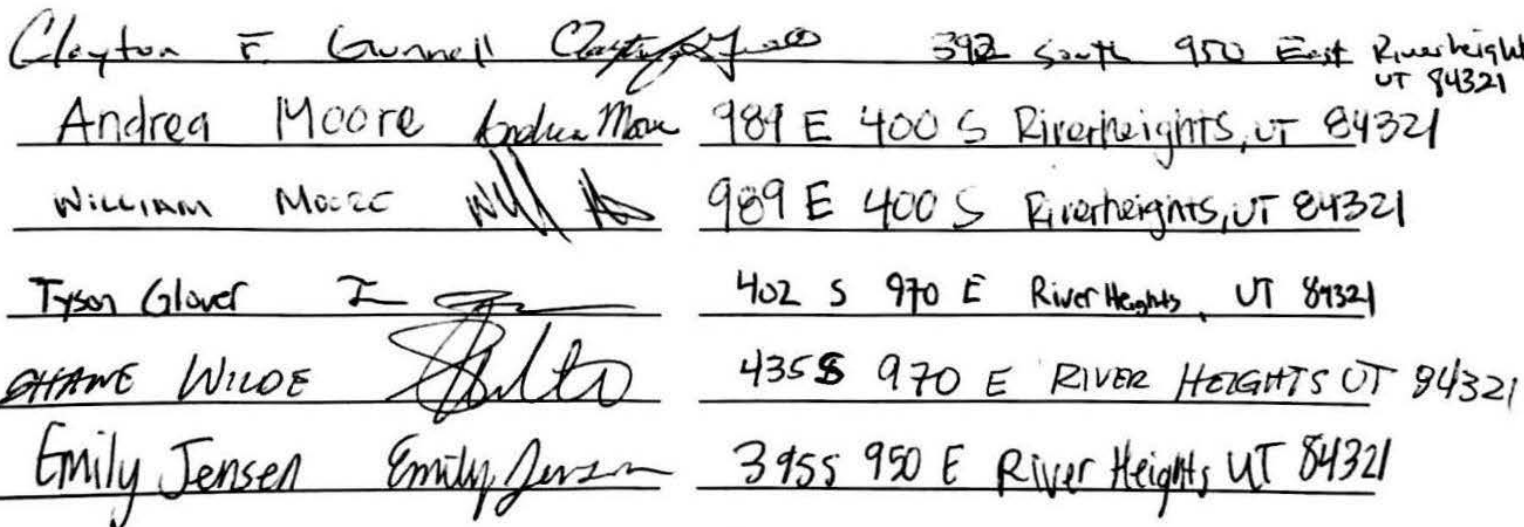 Clayton F. Gunnell 392 South 950 East Riverheight
UT 84321
Andrea Moore Andrea Moore 989 E 400 S Riverheights, UT 84321
William Moore 989 E 400 S Riverheights, UT 84321
Tyson Glover 402 S 970 E River Heights, UT 84321
SHANE WILDE 435 S 970 E RIVER HEIGHTS UT 84321
Emily Jensen Emily Jensen 395 S 950 E River Heights UT 84321